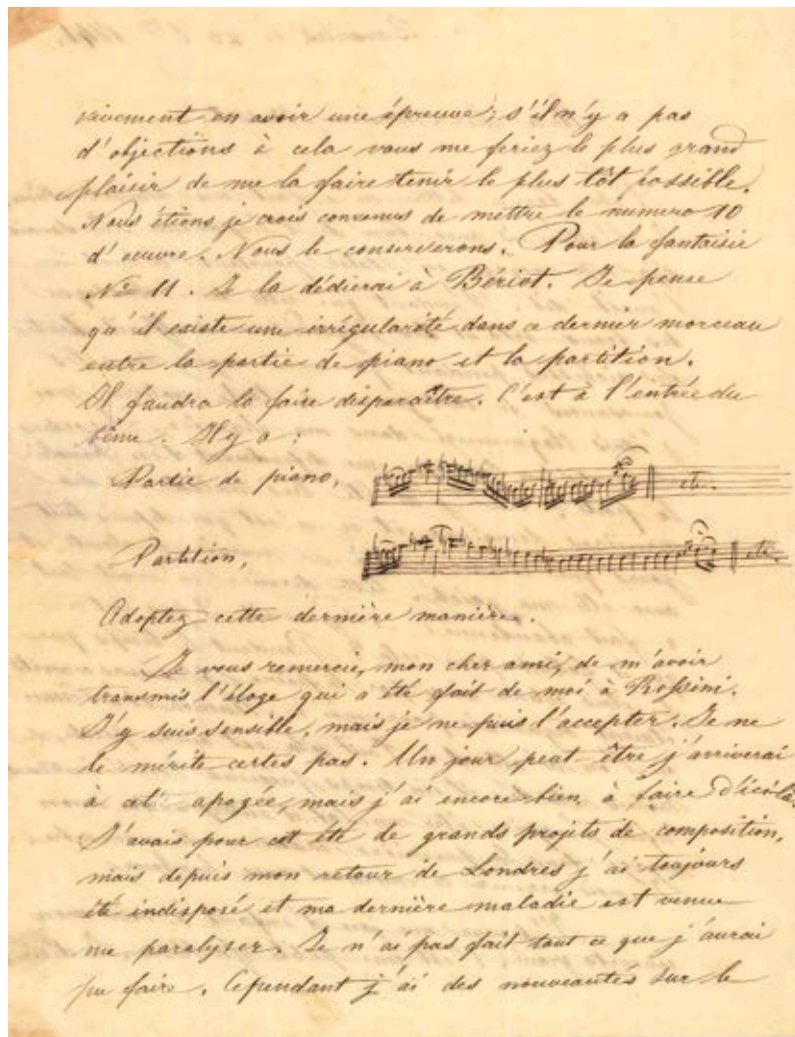 vivement en avoir une épreuve; s'il n'y a pas
d'objections à cela vous me feriez le plus grand
plaisir de me la faire tenir le plus tôt possible.
Nous étions je crois convenus de mettre le numero 10
d'œuvre. Nous le conserverons. Pour la fantaisie
Nº 11. Je la dédierai à Bériot. Je pense
qu'il existe une irrégularité dans ce dernier morceau
entre la partie de piano et la partition.
Il faudra la faire disparaître. C'est à l'entrée du
Il y a :
Partie de piano, etc.
Partition, etc.
Adoptez cette dernière manière.
Je vous remercie, mon cher ami, de m'avoir
transmis l'éloge qui a été fait de moi à Rossini.
J'y suis sensible, mais je ne puis l'accepter. Je ne
le mérite certes pas. Un jour peut-être j'arriverai
à cet apogée, mais j'ai encore bien à faire d'ici là.
J'avais pour cet été de grands projets de composition,
mais depuis mon retour de Londres j'ai toujours
été indisposé et ma dernière maladie est venue
me paralyser. Je n'ai pas fait tout ce que j'aurai
pu faire. Cependant j'ai des nouveautés sur le